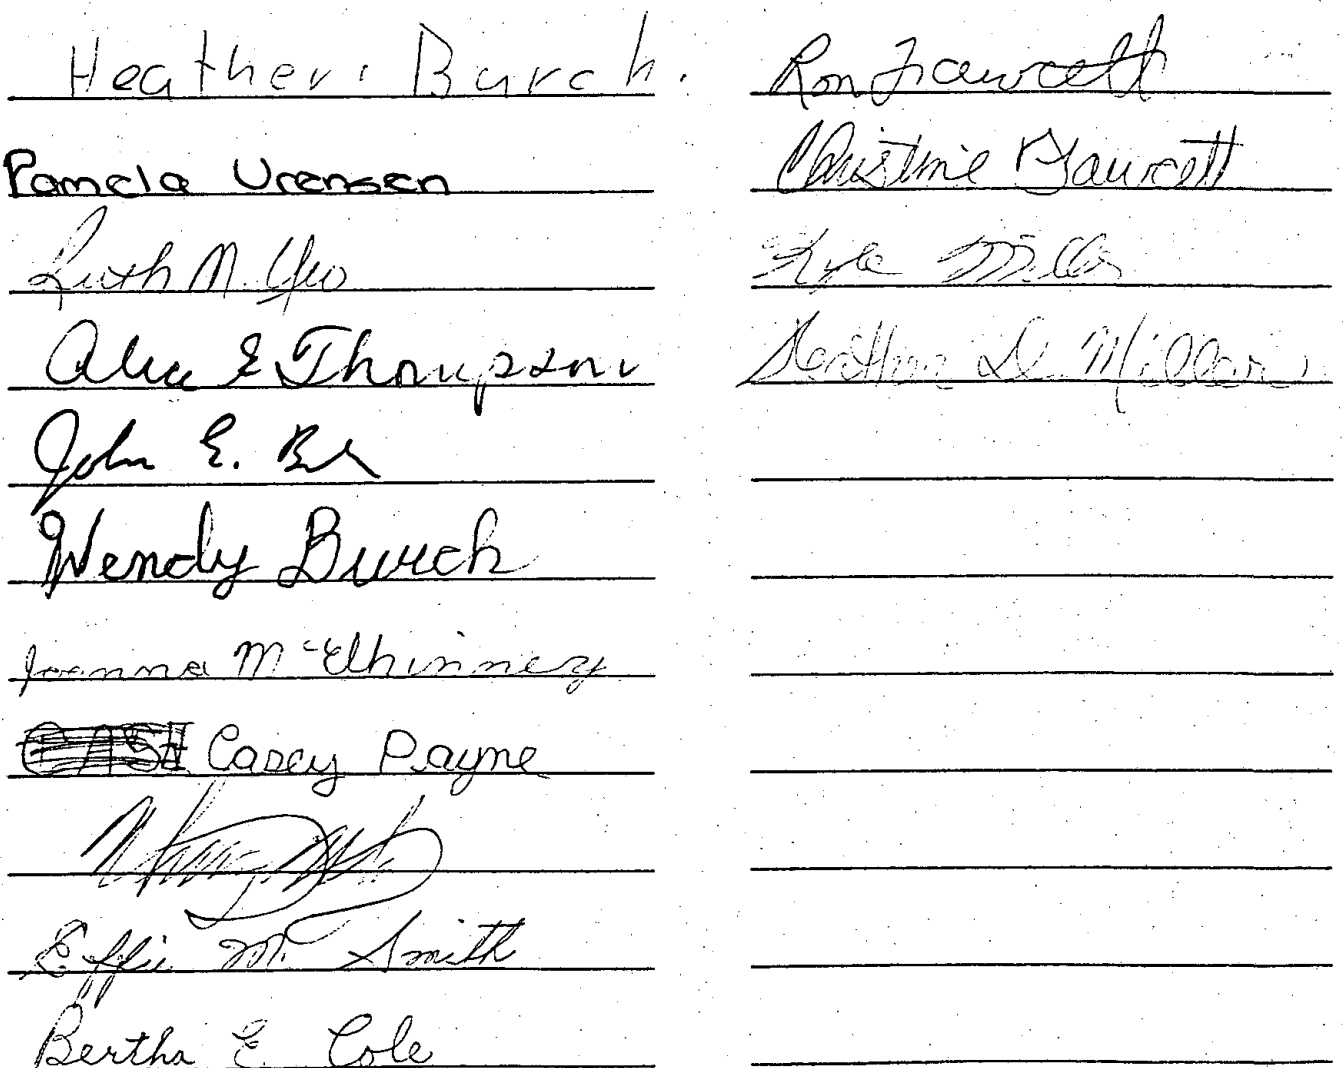 Heather Burch.
Pamela Urensen
Ruth M. Yeo
Alice E Thompson
John E.
Wendy Burch
Joanna McElhinney
Casey Payne
Effie M. Smith
Bertha E. Cole
Ron Fawcett
Christine Fawcett
Kyle Miller
Heather D. Miller